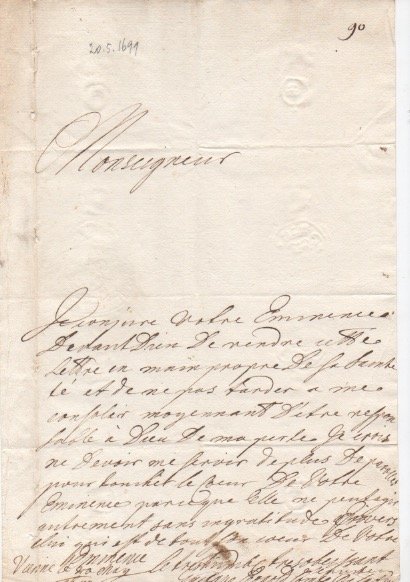 20.5.1699
90
Monseigneur
Je conjure Votre Eminence
devant Dieu de rendre cette
Lettre en main propre de Sa Sainte
té et de ne pas tarder a me
consoler moyennant d'être respon
sable à Dieu de ma perte. Je crois
ne devoir me servir de plus de
pour toucher le cœur de Votre
Eminence parceque Elle ne peut agir
autrement sans ingratitude envers
celui qui est de tout son coeur De Votre
Eminence
Vienne le 20 May le tres obeissant